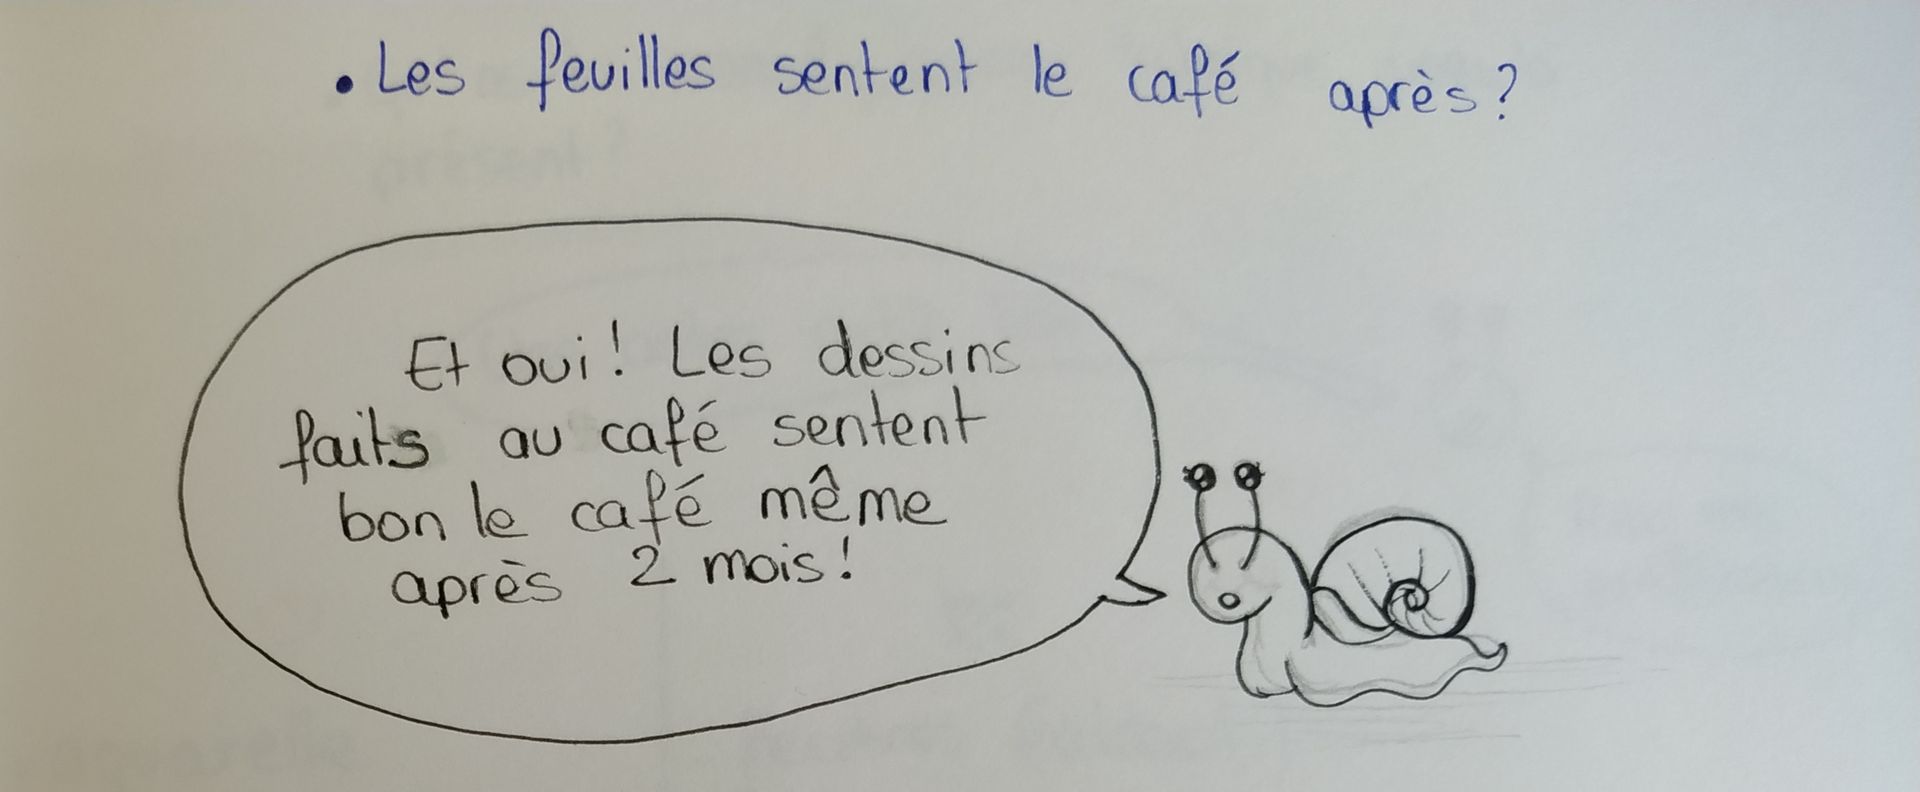 • Les feuilles sentent le café après?
Et oui! Les dessins
faits au café sentent
bon le café même
après 2 mois!